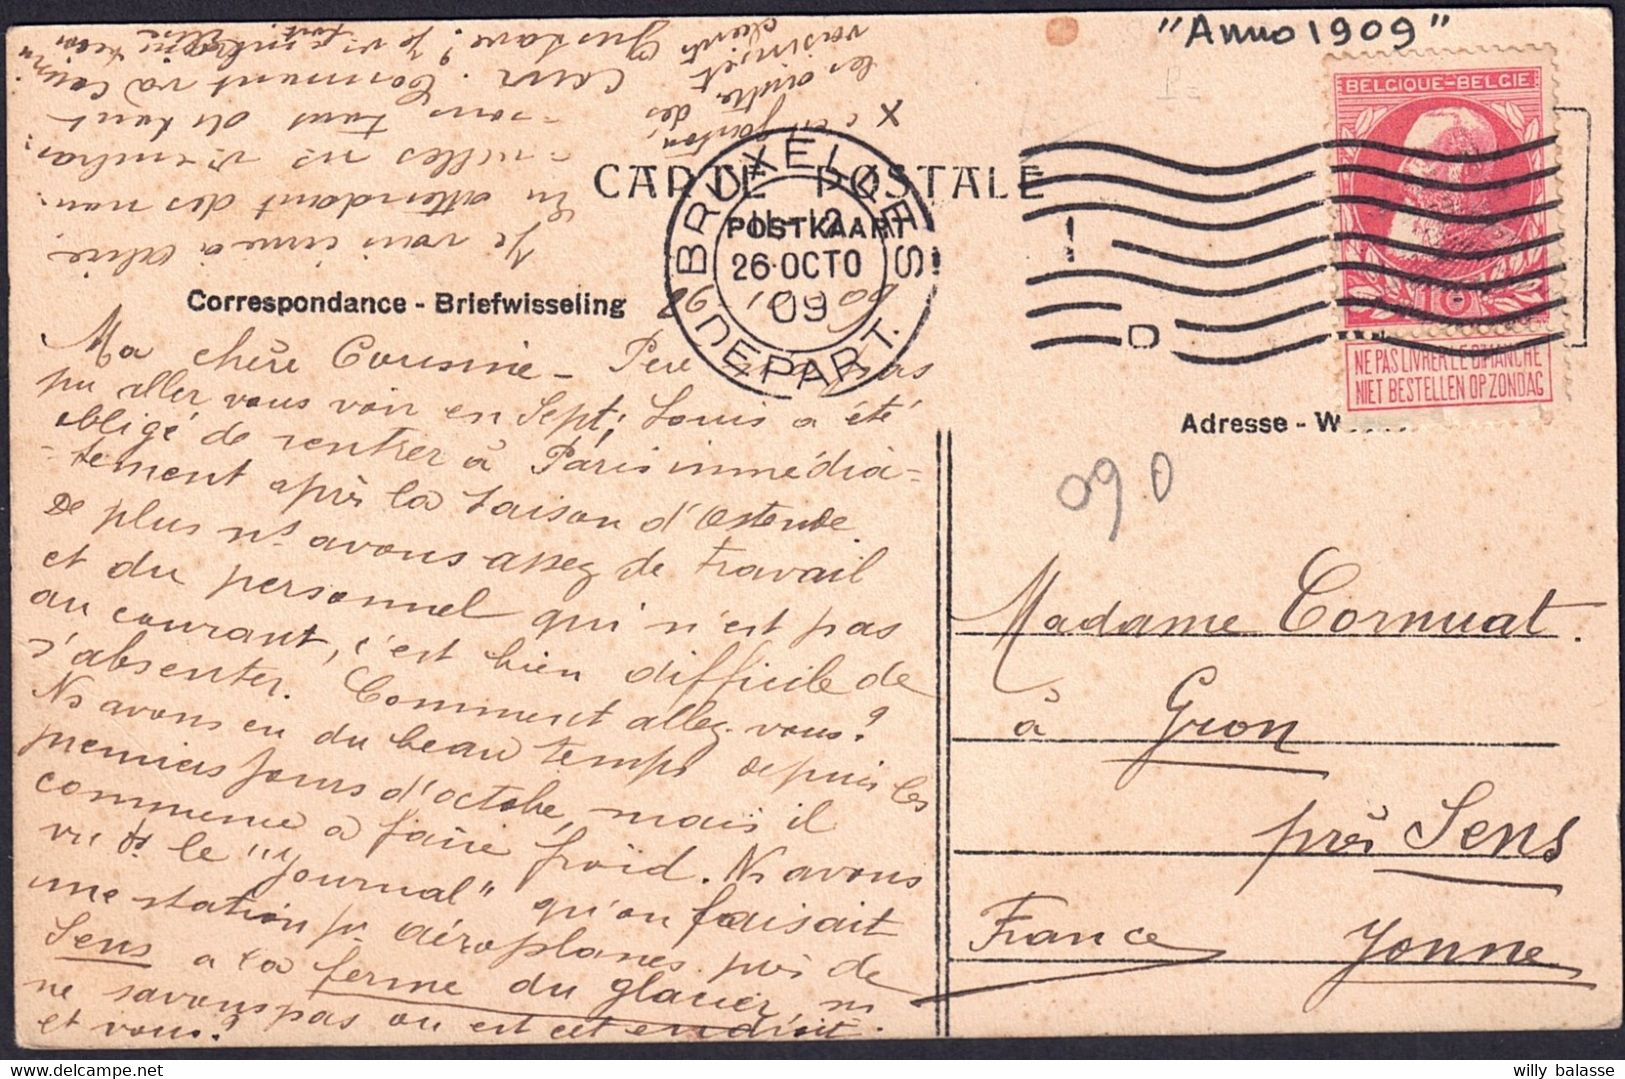 "Anno 1909"
BELGIQUE-BELGIE
10
NE PAS LIVRER LE DIMANCHE
NIET BESTELLEN OP ZONDAG
CARTE POSTALE
POSTKAART
BRUXELLES
11-12
26·OCTO
09
DEPART.
Correspondance - Briefwisseling
Adresse - W
090
Ma chère Cousine - Père
pu aller vous voir en Sept; Louis a été
obligé de rentrer à Paris immédia=
=tement après la saison d'Ostende.
De plus ns avons assez de travail
et du personnel qui n'est pas
au courant, c'est bien difficile de
s'absenter. Comment allez-vous?
Ns avons eu du beau temps depuis les
premiers jours d'octobre, mais il
commence à faire froid. Ns avons
vu ds. le "Journal" qu'on faisait
une station pr. aéroplanes près de
Sens a la ferme du glacier, ns
ne savons pas ou est cet endroit.
et vous?
Je vous
En attendant des nou-
-velles ns vs embras-
-sons tous de tout
Cœur. Comment va
Gustave? Je
x
les
voisin et
des
Madame Cornuat.
à Gron
près Sens
France Yonne
willy balasse